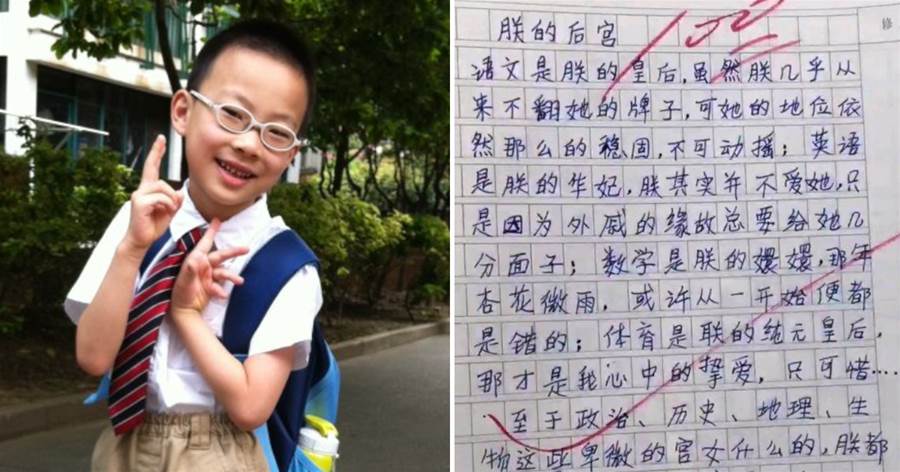 朕的后宫
100
修
语文是朕的皇后,虽然朕几乎从
来不翻她的牌子,可她的地位依
然那么的稳固,不可动摇;英语
是朕的华妃,朕其实并不爱她,只
是因为外戚的缘故总要给她几
分面子;数学是朕的嬛嬛,那年
杏花微雨,或许从一开始便都
是错的;体育是朕的纯元皇后,
那才是我心中的挚爱,只可惜……
至于政治、历史、地理、生
物这些卑微的宫女什么的,朕都